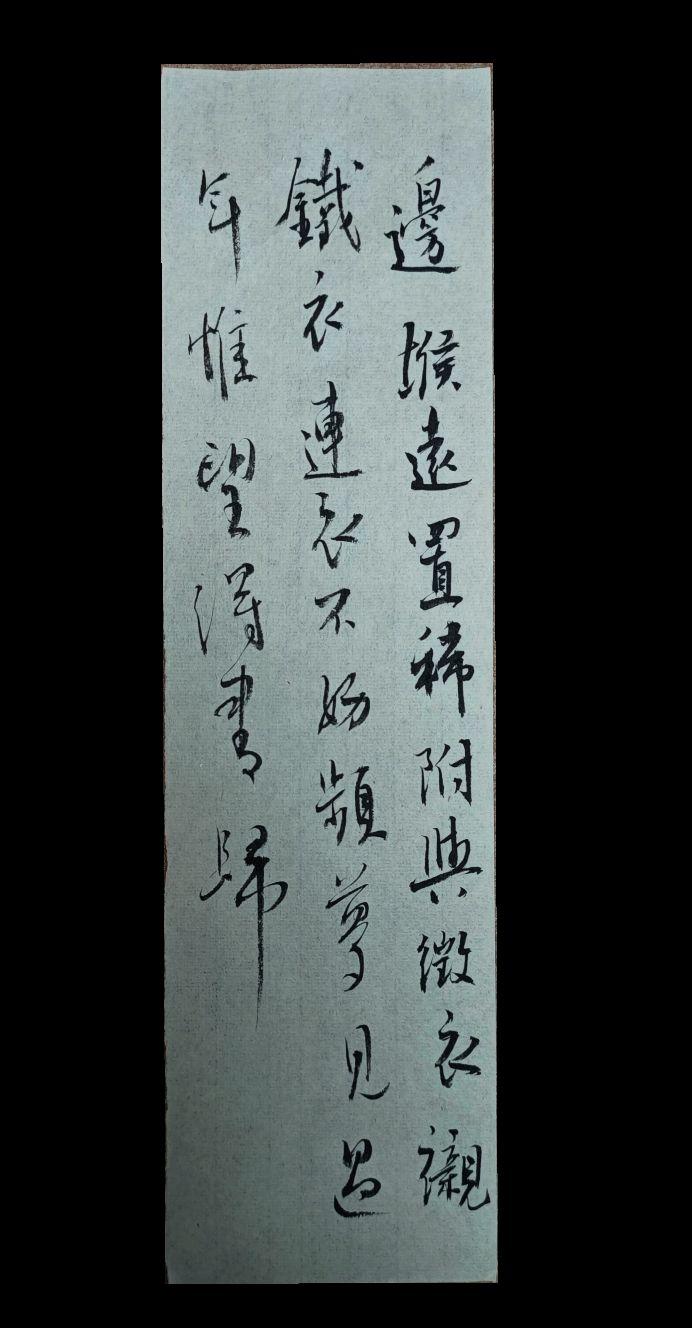 邊堠遠置稀附與徵衣襯
鐵衣連衣不妨頻夢見過
年惟望得書歸